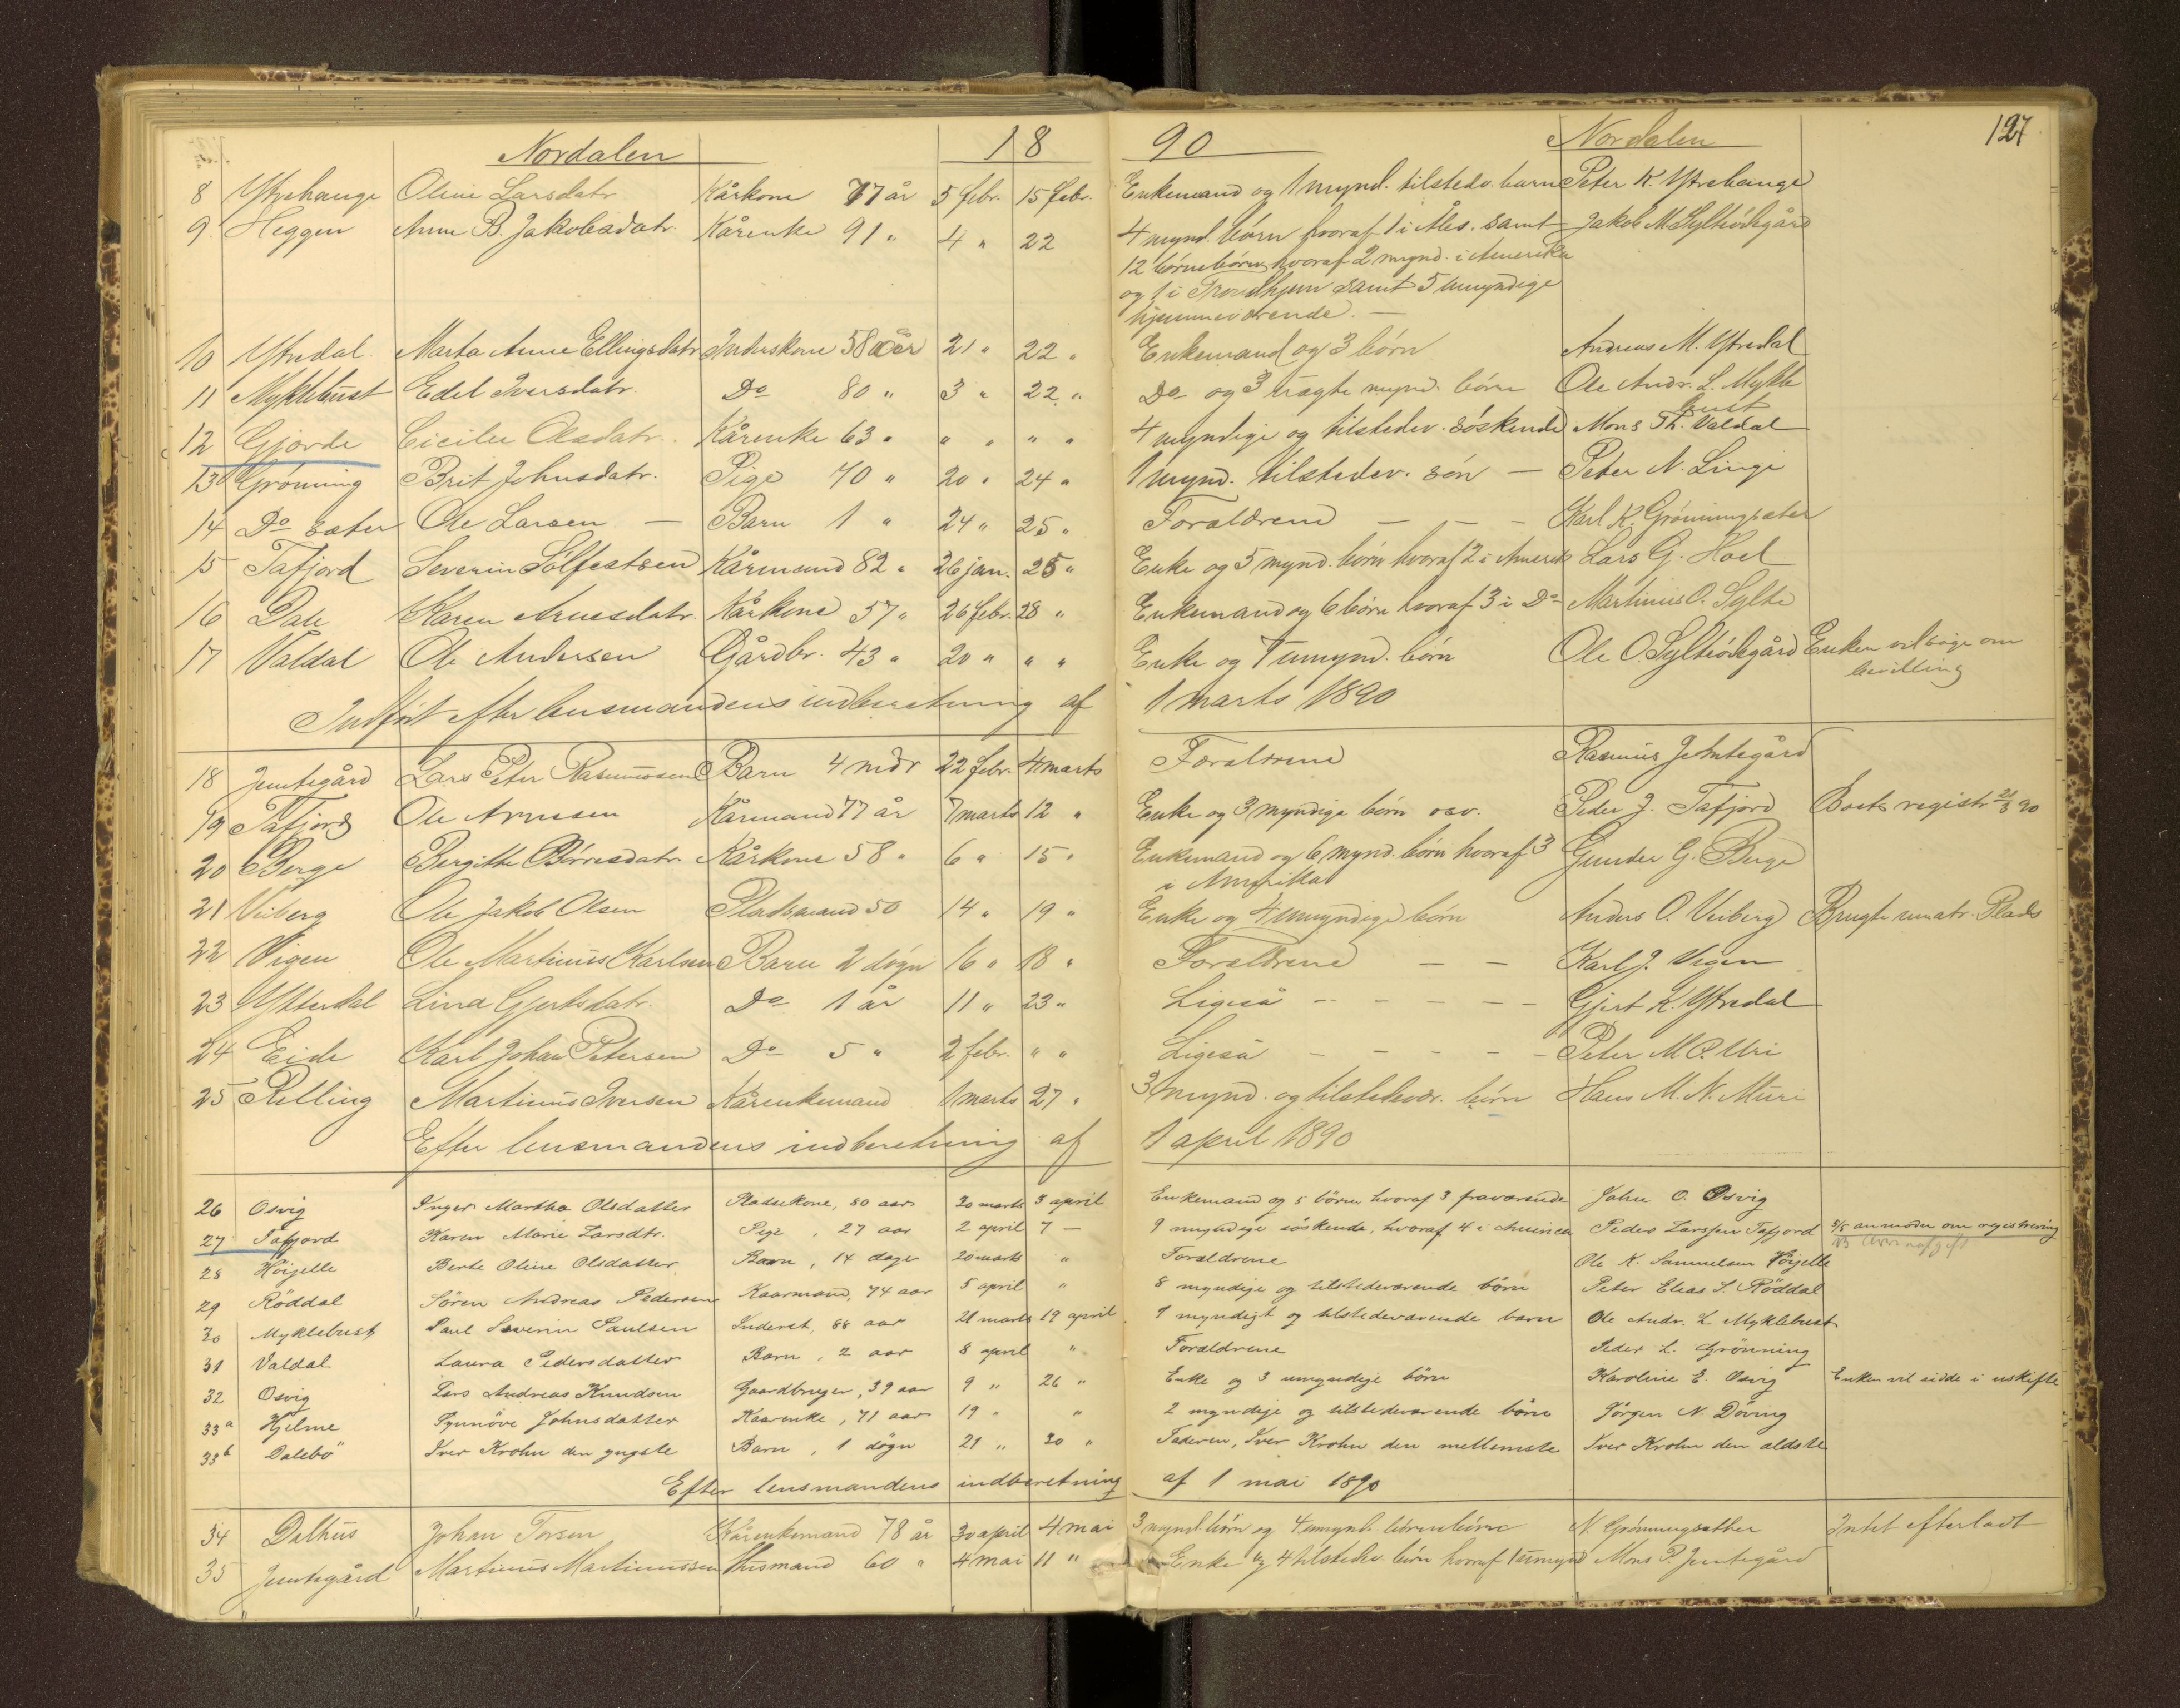 Nordalen 18 90 Nordalen 127
8 Ytrehauge Oline Larsdatr Kårkone 77 år 5 febr. 15 febr. Enkemand og 1 mynd. tilstedv. barn Peter K. Ytrehauge
9 Heggen Anne B. Jakobsdatr. Kårenke 91 " 4 " 22 4 mynd. börn hvoraf 1 i Åles. samt Jakob M. Sylteödegård
12 börnebörn hvoraf 2 mynd. i Amerika
og 1 i Trondhjem samt 5 umyndige
hjemmeværende. —
10 Ytredal Marta Anne Ellingsdatr Inderskone 58 år 21 " 22 " Enkemand og 3 börn Andreas M. Ytredal
11 Myklebust Edel Iversdatr. Do 80 " 3 " 22 " Do og 3 ægte mynd. börn Ole Andr. L. Mykle
bust
12 Gjörde Cicilie Olsdatr. Kårenke 63 " " " " " 4 myndige og tilstedev. söskende Mons Th. Valdal
13 Grönning Brit Johnsdatr. Pige 70 " 20 " 24 " 1 mynd. tilstedev. sön — Peter N. Linge
14 Do sæter Ole Larsen — Barn 1 " 24 " 25 " Forældrene — — — Karl K. Grönningsæter
15 Tafjord Severin Sölfestsen Kårmand 82 " 26 jan. 25 " Enke og 5 mynd. börn hvoraf 2 i Amerik Lars G. Hoel
16 Dale Karen Arnesdatr. Kårkone 57 " 26 febr. 28 " Enkemand og 6 börn hvoraf 3 i Do Martinus O. Sylte
17 Valdal Ole Andersen Gårdbr. 43 " 20 " " " Enke og 7 umynd. börn Ole O Sylteödegård Enken vil söge om
bevilling
Indfört efter lensmandens indberetning af 1 marts 1890
18 Jemtegård Lars Peter Rasmussen Barn 4 mdr 22 febr. 4 marts Forældrene Rasmus Jemtegård
19 Tafjord Ole Arnesen Kårmand 77 år 7 marts 12 " Enke og 3 myndige börn osv. Peder J. Tafjord Boets registr 21/3 90
20 Berge Bergitte Börresdatr. Kårkone 58 " 6 " 15 " Enkemand og 6 mynd. börn hvoraf 3 Gunder G. Berge
i Amerika
21 Veiberg Ole Jakob Olsen Pladsmand 50 14 " 19 " Enke og 4 umyndige börn Anders O. Veiberg Brugte umatr. Plads
22 Vigen Ole Martinus Karlsen Barn 2 dögn 16 " 18 " Forældrene — — Karl J. Vigen
23 Ytterdal Lina Gjertsdatr. Do 1 år 11 " 23 " Ligeså — — — — — Gjert K. Ytredal
24 Eide Karl Johan Petersen Do 5 " 2 febr. " " Ligeså — — — — — Peter M. O. Uri
25 Relling Martinus Iversen Kårenkemand 1 marts 27 " 3 mynd. og tilstedevær. börn Hans M. N. Muri
Efter lensmandens indberetning af 1 april 1890
26 Osvig Inger Martha Olsdatter Pladsekone, 80 aar 20 marts 3 april Enkemand og 5 börn hvoraf 3 fraværende John O. Osvig
27 Tafjord Karen Marie Larsdtr. Pige, 27 aar 2 april 7 — 9 myndige söskende, hvoraf 4 i America Peder Larssen Tafjord 3/5 anmoder om registrering
28 Höijelle Berte Oline Olsdatter Barn, 14 dage 20 marts " Forældrene Ole K. Samuelsen Höijelle
29 Röddal Sören Andreas Pedersen Kaarmand, 74 aar 5 april " 8 myndige og tilstedeværende börn Peter Elias S. Röddal
30 Myklebust Paul Severin Paulsen Inderst, 88 aar 21 marts 19 april 1 myndigt og tilstedeværende barn Ole Andr. L Myklebust
31 Valdal Laura Pedersdatter Barn, 2 aar 8 april " Forældrene Peder L. Grönning
32 Osvig Lars Andreas Knudsen Gaardbruger, 39 aar 9 " 26 " Enke og 3 umyndige börn Karoline E. Osvig Enken vil sidde i uskifte
33a Hjelme Synnöve Johnsdatter Kaarenke, 71 aar 19 " " 2 myndige og tilstedeværende börn Jörgen N. Döving
33b Dalebö Iver Krohn den yngste Barn, 1 dögn 21 " 30 " Faderen, Iver Krohn den mellemste Iver Krohn den ældste
Efter lensmandens indberetning af 1 mai 1890
34 Delhus Johan Torsen Kårenkemand 78 år 30 april 4 mai 3 mynd. börn og 4 umynd. börnebörn N. Grönningsæther Intet efterladt
35 Jemtegård Martinus Martinussen Husmand 60 " 4 mai 11 " Enke og 4 tilstedev. börn hvoraf 1 umynd Mons P. Jemtegård